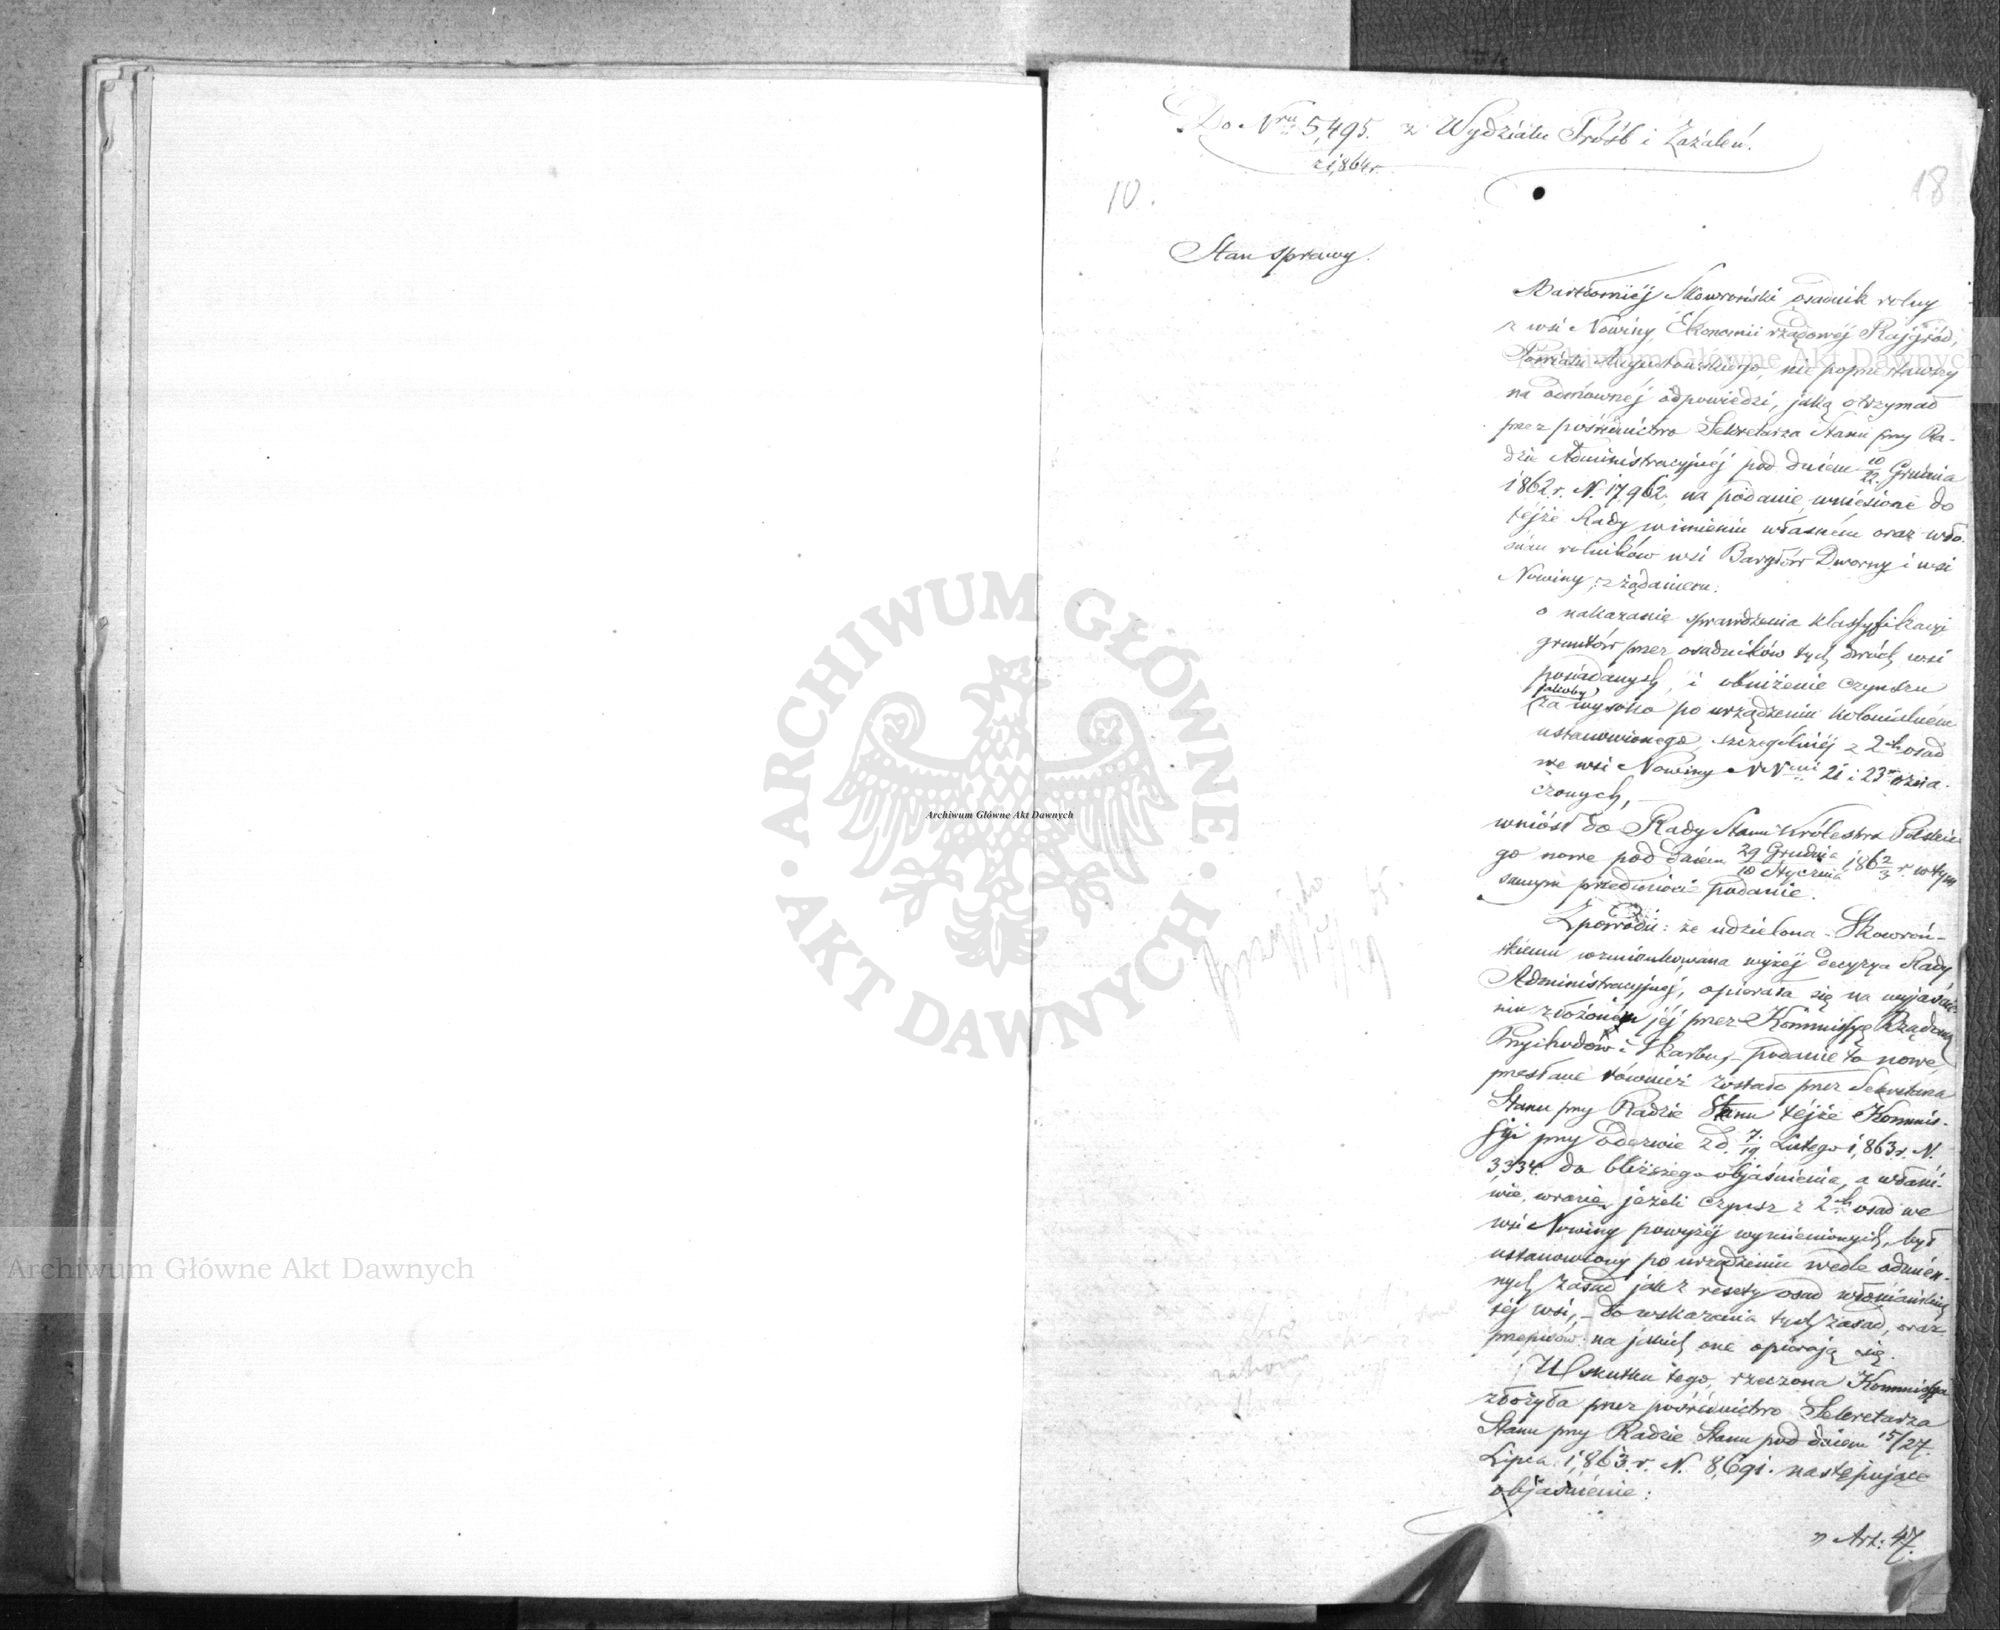 Do Nru 5,495. z Wydziału Próśb i Zażaleń.
z 1,864 r.
10.
18
Stan sprawy.
Bartłomiéj Skowroński osadnik rolny
z wsi Nowiny, Ekonomii rządowéj Rajgród,
Powiatu Augustowskiego, nie poprzestawszy
na odmownéj odpowiedzi, jaką otrzymał
przez pośrednictwo Sekretarza Stanu przy Ra-
dzie Administracyjnéj pod dniem 10/22 Grudnia
1862 r. N. 17,962, na podanie wniesione do
téjże Rady w imieniu własném oraz wło-
ścian rolników wsi Bargłów Dworny i wsi
Nowiny, z żądaniem:
o nakazanie sprawdzenia klassyfikacyi
gruntów przez osadników tych dwóch wsi
posiadanych, i obniżenie czynszu
jakoby
za wysoko po urządzeniu kolonialném
ustanowionego, szczególniéj z 2ch osad
we wsi Nowiny NNrami 21 i 23 ozna-
czonych,
wniósł do Rady Stanu Królestwa Polskie-
go nowe pod dniem 29 Grudnia/10 Stycznia 186 2/3 r. w tym
samym przedmiocie podanie.
Z powodu: że udzielona Skowroń-
skiemu wzmiankowana wyżéj decyzya Rady
Administracyjnéj, opierała się na wyjaśnie-
niu złożoném jéj przez Kommissyę Rządową
Przychodów i Skarbu, podanie to nowe,
przesłane również zostało przez Sekretarza
Stanu przy Radzie Stanu téjże Kommis-
syi przy odezwie z d. 7/19 Lutego 1,863 r. N.
3334. do bliższego objaśnienia, a właści-
wie, w razie jeżeli czynsz z 2ch osad we
wsi Nowiny powyżéj wymienionych, był
ustanowiony po urządzeniu wedle odmien-
nych zasad jak z reszty osad włościańskich
téj wsi, – do wskazania tych zasad, oraz
przepisów na jakich one opierają się.
W skutku tego, rzeczona Kommissya
złożyła przez pośrednictwo Sekretarza
Stanu przy Radzie Stanu pod dniem 15/27.
Lipca 1,863 r. N. 8,691. następujące
objaśnienie:
„ Art: 47.
Archiwum Główne Akt Dawnych
Archiwum Główne Akt Dawnych
Archiwum Główne Akt Dawnych
ARCHIWUM GŁÓWNE · AKT DAWNYCH ·